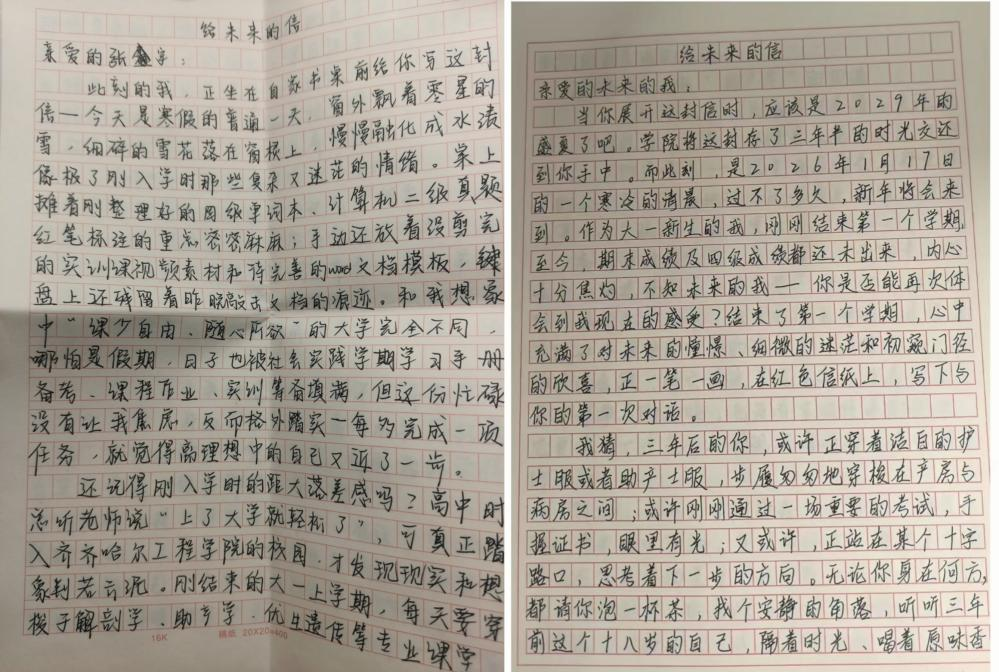 给未来的信
亲爱的张宇：
此刻的我，正坐在自家书桌前给你写这封
信一今天是寒假的普通一天，窗外飘着零星的
雪，细碎的雪花落在窗棂上，慢慢融化成水渍
像极了刚入学时那些复杂又迷茫的情绪。桌上
摊着刚整理好的四级单词本、计算机二级真题
红笔标注的重点密密麻麻；手边还放着没剪完
的实训课视频素材和待完善的word文档模板，键
盘上还残留着昨晚敲击文档的痕迹。和我想象
中“课少自由、随心所欲”的大学完全不同，
哪怕是假期，日子也被社会实践学期学习手册
备考、课程作业、实训筹备填满，但这份忙碌
没有让我焦虑，反而格外踏实一每多完成一项
任务，就觉得离理想中的自己又近了一步。
还记得刚入学时的距大落差感吗？高中时
总听老师说“上了大学就轻松了”，可真正踏
入齐齐哈尔工程学院的校园，才发现现实和想
象判若云泥。刚结束的大一上学期，每天要穿
梭于解剖学、助产学、优生遗传等专业课学
16K 稿纸 20X20=400
给未来的信
亲爱的未来的我：
当你展开这封信时，应该是2029年的
盛夏了吧。学院将这封存了三年半的时光交还
到你手中。而此刻，是2026年1月17日
的一个寒冷的清晨，过不了多久，新年将会来
到。作为大一新生的我，刚刚结束第一个学期，
至今，期末成绩及四级成绩都还未出来，内心
十分焦灼，不知未来的我一你是否能再次体
会到我现在的感受？结束了第一个学期，心中
充满了对未来的憧憬、细微的迷茫和初窥门径
的欣喜，正一笔一画，在红色信纸上，写下与
你的第一次对话。
我猜，三年后的你，或许正穿着洁白的护
士服或者助产士服，步履匆匆地穿梭在产房与
病房之间；或许刚刚通过一场重要的考试，手
握证书，眼里有光；又或许，正站在某个十字
路口，思考着下一步的方向。无论你身在何方，
都请你泡一杯茶，找个安静的角落，听听三年
前这个十八岁的自己，隔着时光、喝着原味香